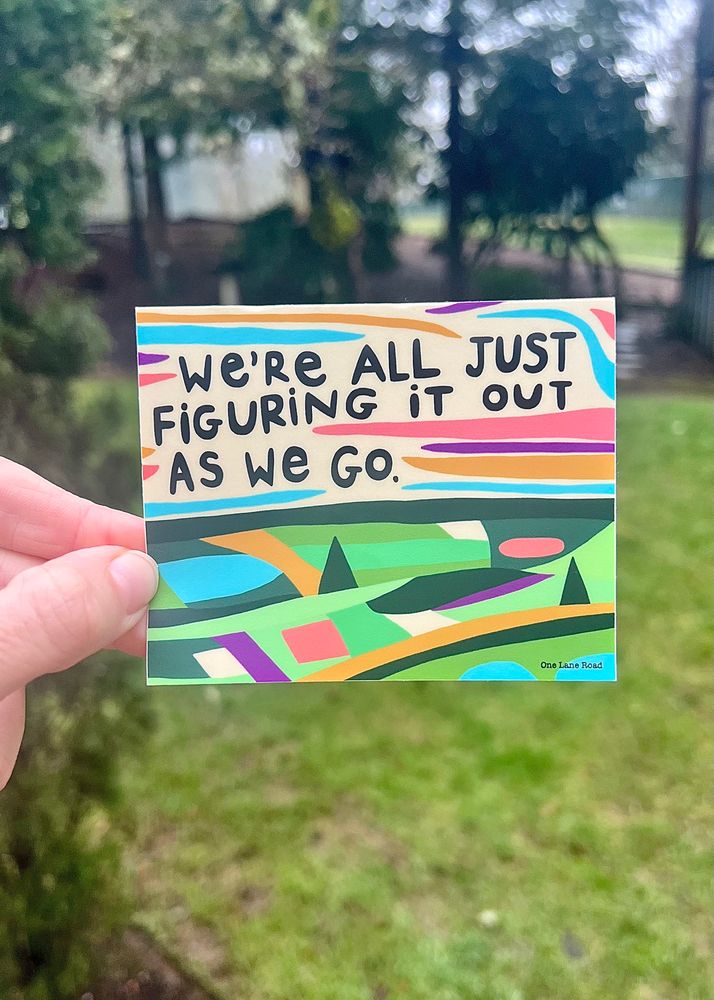 We're ALL JUST
FiGURiNG iT OUT
AS We GO.
One Lane Road